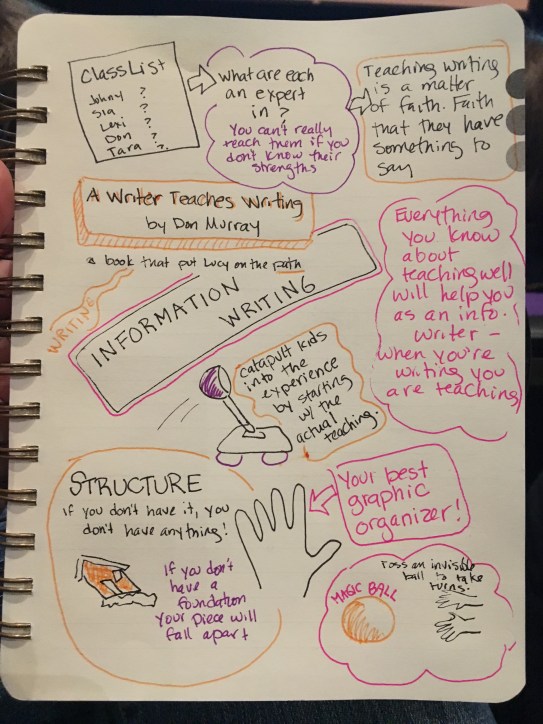 Class List
Johny ?
Sia ?
Lexi ?
Don ?
Tara ?
What are each
an expert
in ?
You can't really
reach them if you
don't know their
strengths
Teaching writing
is a matter
of faith. Faith
that they have
something to
say
A Writer Teaches Writing
by Don Murray
a book that put Lucy on the path
WRITING
INFORMATION
WRITING
Everything
you know
about
teaching well
will help you
as an info.
writer –
when you're
writing you
are teaching
catapult kids
into the
experience
by starting
w/ the
actual
teaching.
STRUCTURE
if you don't have it, you
don't have anything!
If you don't
have a
foundation
your piece will
fall apart
Your best
graphic
organizer!
Toss an invisible
ball to take
turns.
MAGIC BALL